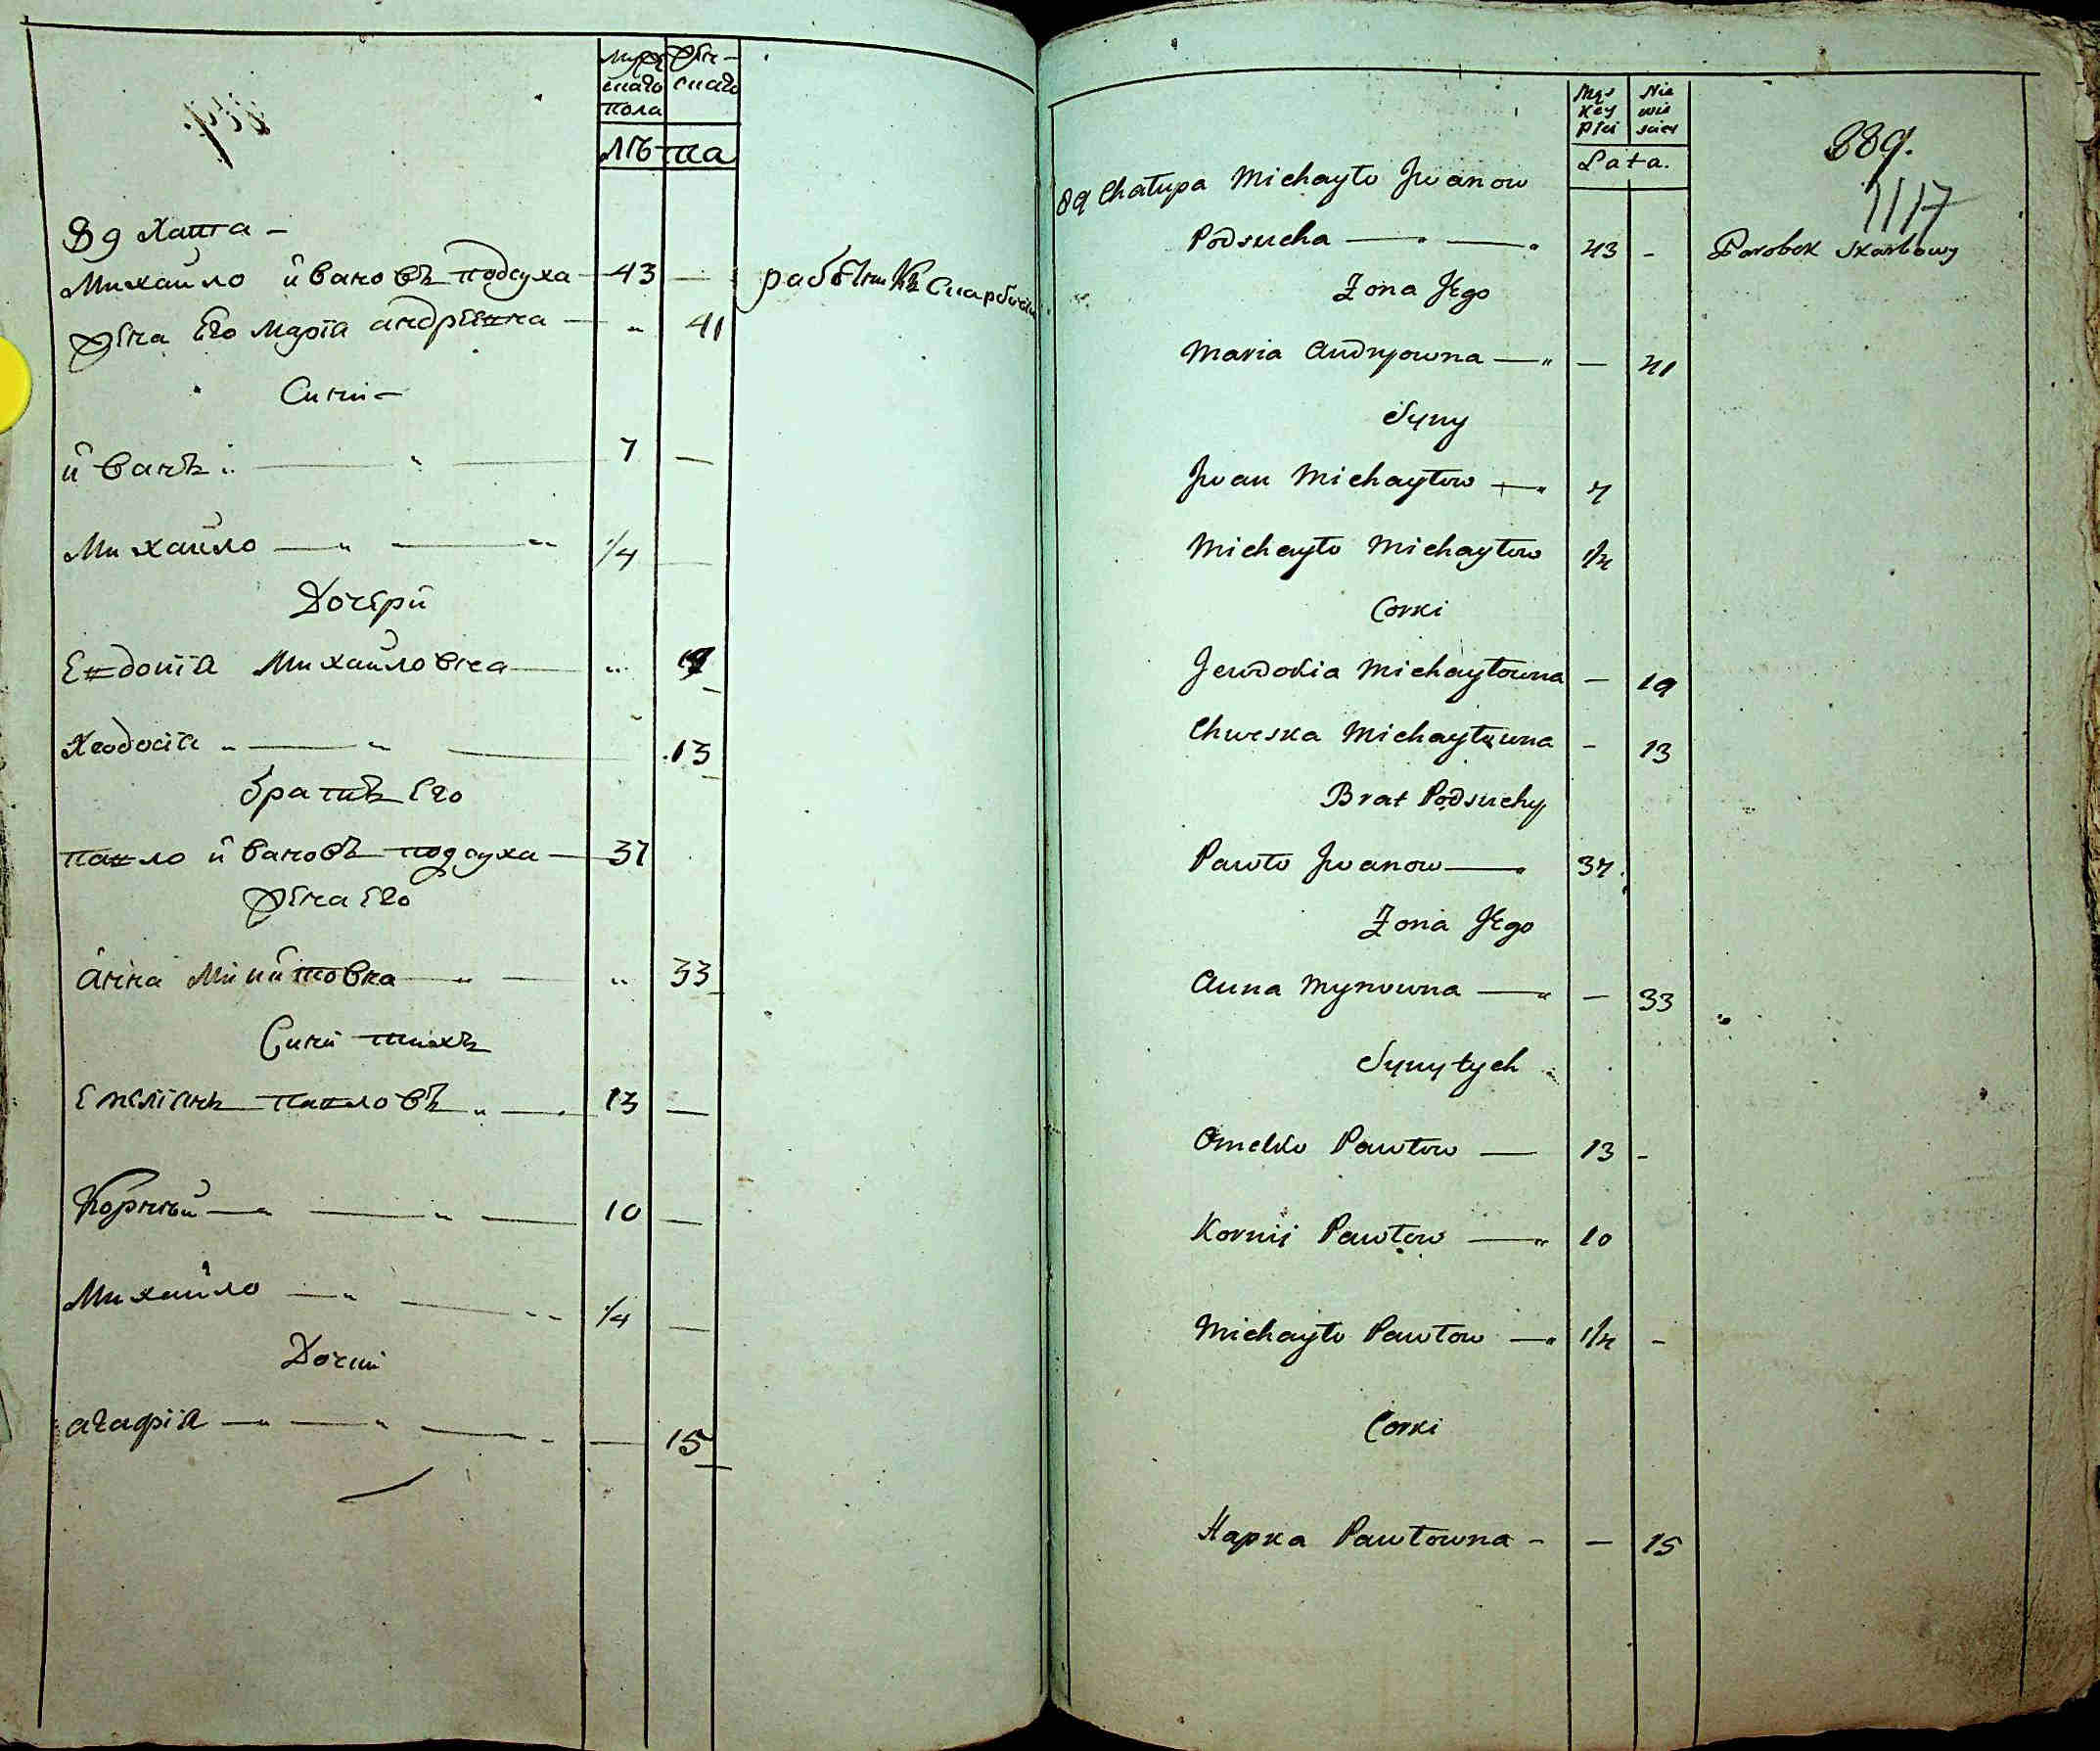 муже
скаго
пола
жен-
скаго
лѣта
89 хата -
Михайло ивановъ подсуха - 43 -
работникъ скарбовый
жена его марiа андрѣевна - " 41
Сини -
иванъ - 7 -
Михайло - 1/4 -
Дочери
Евдокiа Михайловна - " 19
Хеодосiа - 13
братъ его
павло ивановъ подсуха - 37
жена его
анна Микитовна - " 33
Сини тихъ
Емелiанъ павловъ - 13 -
Корний - 10 -
Михайло - 1/4 -
Дочки
агафiа - 15
Męs
Key
Płci
Nie
wie
sciey
Lata.
889.
1117
89 Chałupa Michayło Jwanow
Podsucha - 43 - Parobok skarbowy
Żona Jego
Maria Andryowna - - 41
Syny
Jwan Michayłow - 7
Michayło Michayłow 1/4
Corki
Jewdokia Michayłowna - 19
Chweska Michayłowna - 13
Brat Podsuchy
Pawło Jwanow - 37
Żona Jego
Anna Mynowna - - 33
Syny tych
Omelko Pawłow - 13 -
Kornij Pawłow - 10
Michayło Pawłow - 1/4 -
Corki
Hapka Pawłowna - - 15